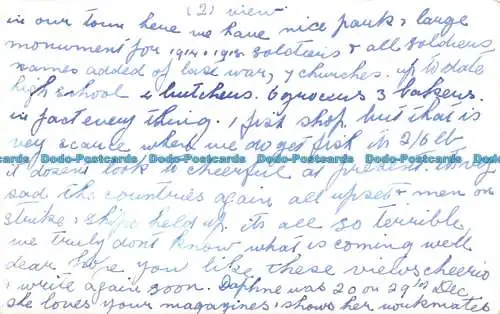 (2) view
in our town here we have nice park & large
monument for 1914. 1918. soldiers & all soldiers
names added of last war, 7 churches. up to date
high school 4 butchers. 6 grocers 3 bakers.
in fact every thing. 1 fish shop. but that is
very scarce when we do get fish its 2/6 lb
Dodo-Postcards Dodo-Postcards Dodo-Postcards Dodo-Postcards Dodo-Postcards
it dosent look to cheerful at present every
sad the countries again all upset & men on
strike & ships held up. its all so terrible,
we truly dont know what is coming well
dear hope you like these views cheerio
& write again soon. Daphne was 20 on 29th Dec,
she loves your magazines & shows her workmates